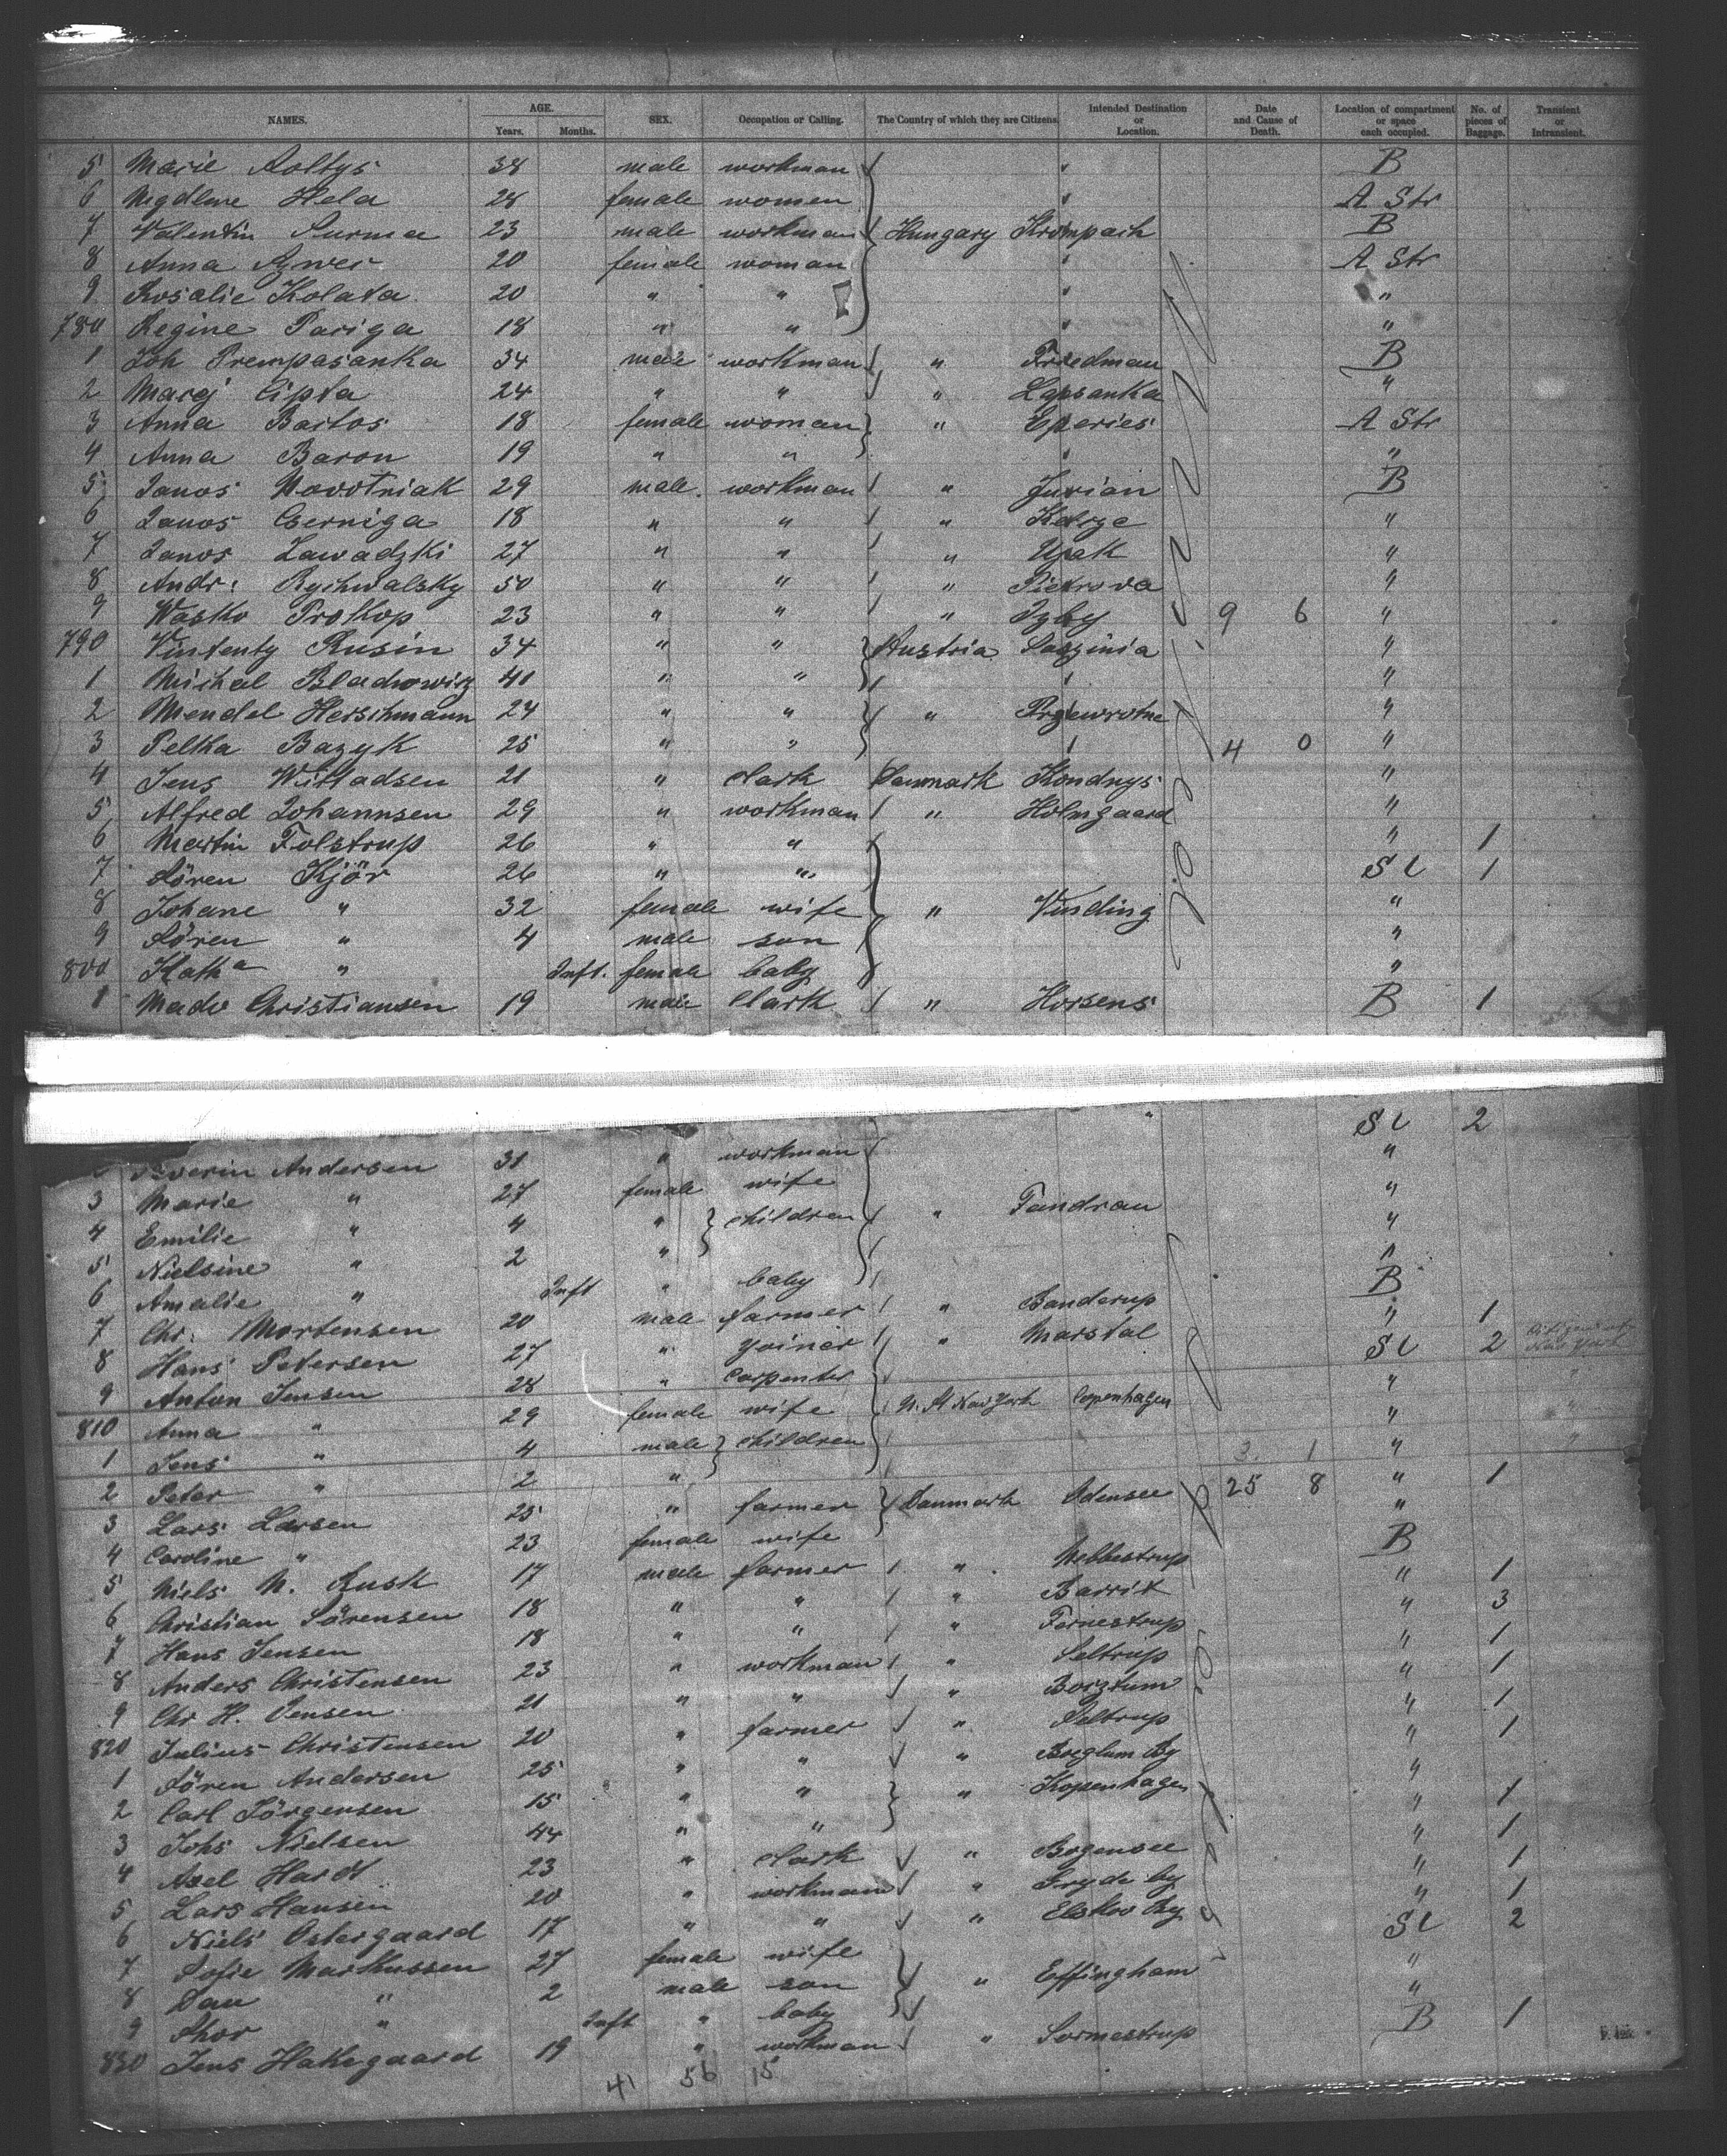 NAMES. AGE. Years. Months. SEX. Occupation or Calling. The Country of which they are Citizens. Intended Destination or Location. Date and Cause of Death. Location of compartment or space each occupied. No. of pieces of Baggage. Transient or Intransient.
5 Marie 38 male workman " B
6 Hela 28 female women " A Str
7 Valentin Surma 23 male workman Hungary Krompach B
8 Anna 20 female woman " A Str
9 Rosalie Kolata 20 " " " "
780 Regine Pariga 18 " " " "
1 Joh Prempasanka 34 male workman " Friedman B
2 Marej Cipta 24 " " " Lapsanka "
3 Anna Bartos 18 female woman " Eperies A Str
4 Anna Baron 19 " " " "
5 Janos Novotniak 29 male workman " Jurian B
6 Janos Czerniga 18 " " " "
7 Janos Zawadzki 27 " " " Ujak "
8 Andr: Rychwalsky 50 " " " Pietrova "
9 Wasko Prokop 23 " " " Izby 9 6 "
790 Vintenty Rusin 34 " " Austria "
1 Michal 41 " " " "
2 Mendel Herschmann 24 " " " Przewrotne "
3 Pelka Bazyk 25 " " " 4 0 "
4 Jens Willadsen 21 " Clark Danmark "
5 Alfred Johannsen 29 " workman " Holmgaard "
6 Martin Folstrup 26 " " " 1
7 Sören Kjör 26 " " S C 1
8 Johane " 32 female wife " Vinding "
9 Sören " 4 male son "
800 Katha " Inft. female baby "
1 Christiansen 19 male Clark " Horsens B 1
" S C 2
Severin Andersen 31 " workman "
3 Marie " 27 female wife "
4 Emilie " 4 " children " Tandrau "
5 Nielsine " 2 " "
6 Amalie " Inft " baby B
7 Chr: Mortensen 20 male farmer " Banderup " 1
8 Hans Petersen 27 " joiner " Marstal S C 2
9 Anton Jensen 28 " Carpenter "
810 Anna " 29 female wife New York Copenhagen " "
1 Jens " 4 male children 3. 1 " "
2 Peter " 2 " 25 8 " 1
3 Lars Larsen 25 " farmer Danmark Odensee "
4 Caroline " 23 female wife B
5 Niels N. Rusk 17 male farmer " Nebbestrup " 1
6 Christian Sörensen 18 " " " Barrit " 3
7 Hans Jensen 18 " " " Fernestrup " 1
8 Anders Christensen 23 " workman " Seltrup " 1
9 Chr H. Jensen 21 " " " " 1
820 Julius Christensen 20 " farmer " Seltrup " 1
1 Sören Andersen 25 " " " Boeglum By "
2 Carl Jörgensen 15 " " " Kopenhagen " 1
3 Johs Nielsen 44 " " " 1
4 Axel Hardt 23 " Clark " Bogensee " 1
5 Lars Hansen 20 " workman " " 1
6 Niels Ostergaard 17 " " " Elskov By S C 2
7 Sofie Markussen 27 female wife "
8 Dan " 2 male son " Effingham "
9 Thor " Inft " baby B 1
830 Jens Hakegaard 19 " workman " Sormestrup
41 56 15